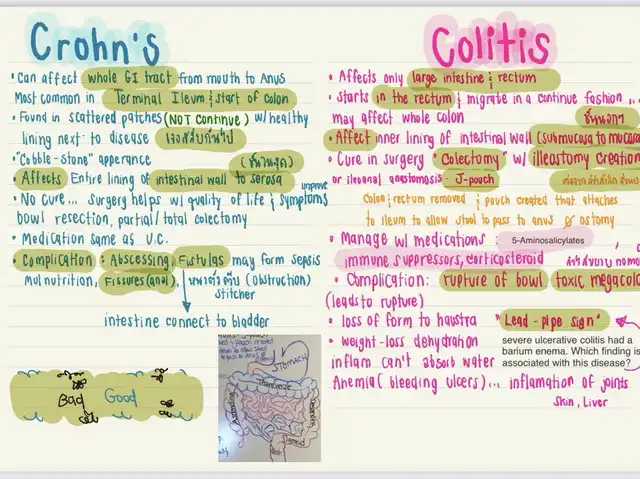 Crohn's
• Can affect whole GI tract from mouth to Anus
Most common in Terminal Ileum & start of colon
• Found in scattered patches (NOT CONTINUE) w/ healthy
lining next to disease เจอสลับกันไป
• "Cobble-stone" apperance (ชั้นในสุด)
• Affects Entire lining of intestinal wall to serosa
improve
• No cure... Surgery helps w/ quality of life & symptoms
bowel resection, partial/total colectomy
• Medication same as U.C.
• Complication : Abscessing, Fistulas may form sepsis
Malnutrition, Fissures (anal), (Obstruction)
Stitcher
intestine connect to bladder
Bad Good
STOMACH
Transverse
Ascending
Descending
Sigmoid
Colitis
• Affects only large intestine & rectum
• Starts in the rectum & migrate in a continue fashion...
may affect whole colon
ชั้นนอกๆ
• Affect inner lining of intestinal wall (submucosa to mucosa
• Cure in surgery "Colectomy" w/ illeostomy creation
or ileoanal anastomosis - J-pouch
Colon & rectum removed & pouch created that attaches
to ileum to allow stool to pass to anus & ostomy
• Manage w/ medications : 5-Aminosalicylates
immune suppressors, corticosteroid
• Complication: rupture of bowel toxic megacolo
(leads to rupture)
• loss of form to haustra "Lead-pipe sign"
• weight-loss dehydration
severe ulcerative colitis had a
barium enema. Which finding is
associated with this disease?
inflam can't absorb water
Anemia (bleeding ulcers)... inflamation of joints
Skin, Liver